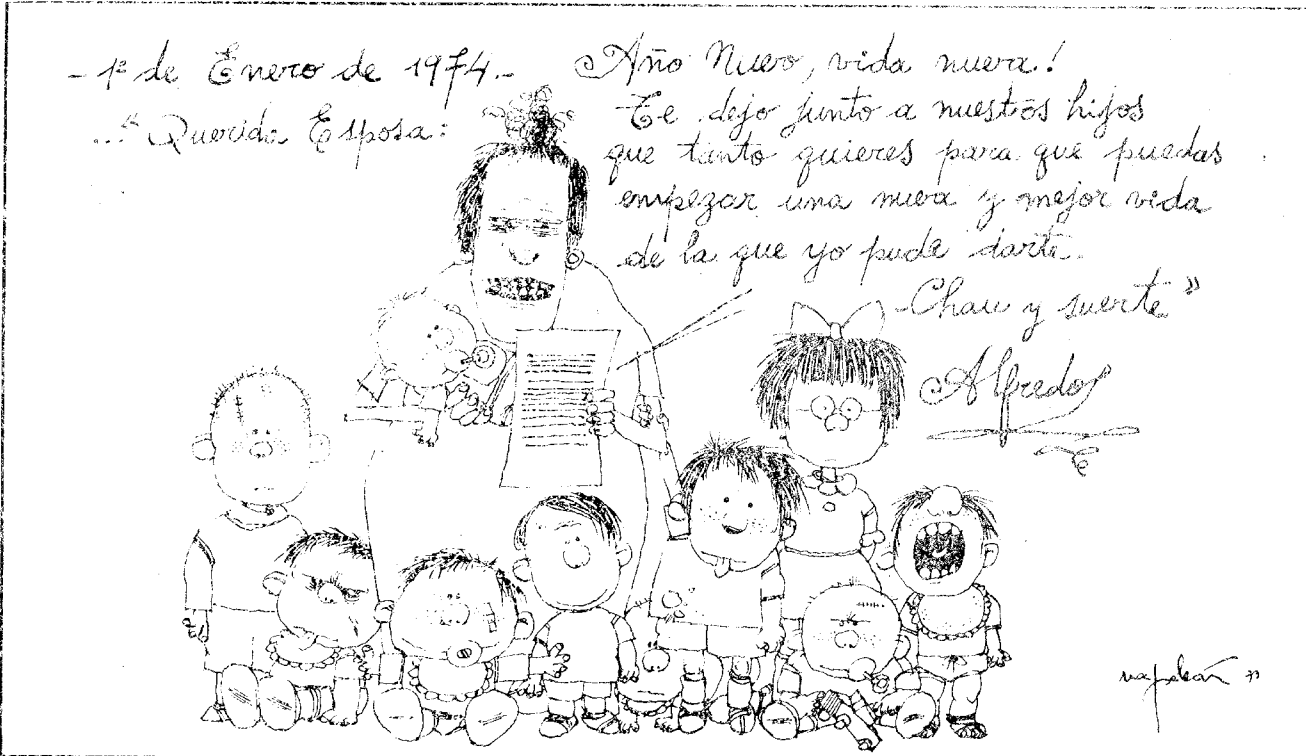 - 1º de Enero de 1974.-
..." Querida Esposa:
Año Nuevo, vida nueva!
Te dejo junto a nuestros hijos
que tanto quieres para que puedas
empezar una nueva y mejor vida
de la que yo pude darte.
-Chau y suerte"
Alfredo
napoleón 73